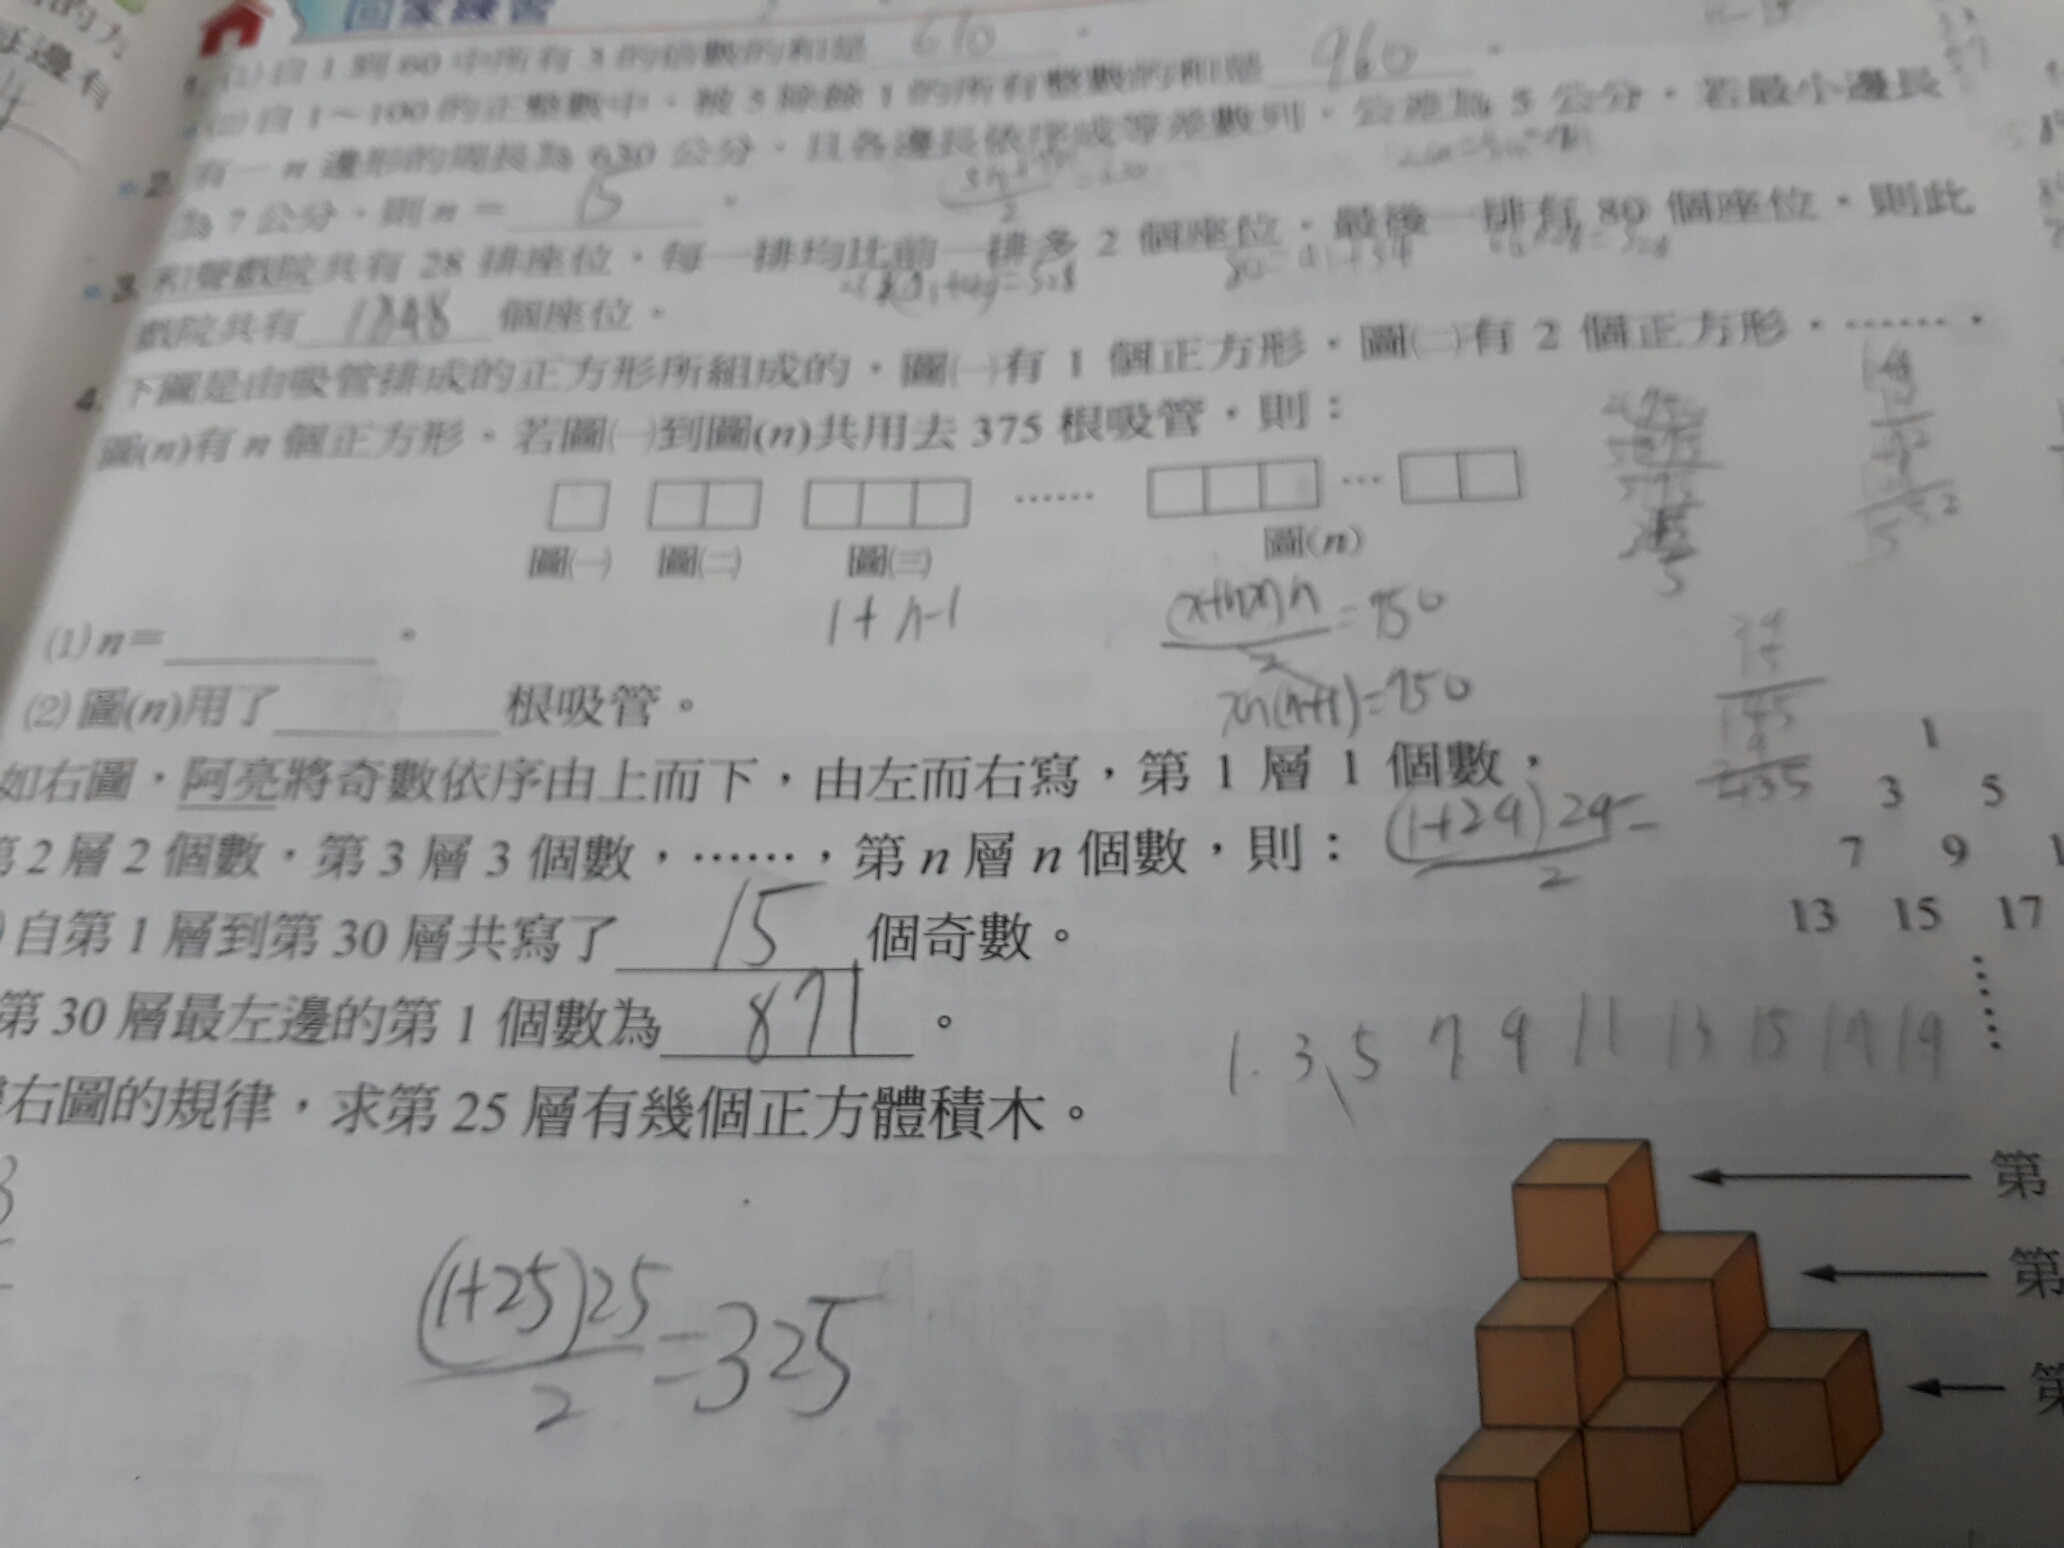 回家練習
1. (1) 自 1 到 60 中所有 3 的倍數的和是 610 。
(2) 自 1～100 的正整數中，被 5 除餘 1 的所有整數的和是 960 。
2. 有一 n 邊形的周長為 630 公分，且各邊長依序成等差數列，公差為 5 公分，若最小邊長
為 7 公分，則 n = 15 。
3. 和聲戲院共有 28 排座位，每一排均比前一排多 2 個座位，最後一排有 80 個座位，則此
戲院共有 1848 個座位。
4. 下圖是由吸管排成的正方形所組成的，圖(一)有 1 個正方形，圖(二)有 2 個正方形，……，
圖(n)有 n 個正方形。若圖(一)到圖(n)共用去 375 根吸管，則：
…… …
圖(一) 圖(二) 圖(三) 圖(n)
1+n-1
(1) n= 。
(2) 圖(n)用了 根吸管。
=750
=750
如右圖，阿亮將奇數依序由上而下，由左而右寫，第 1 層 1 個數，
第 2 層 2 個數，第 3 層 3 個數，……，第 n 層 n 個數，則：
(1+29)29=
2
1
3 5
7 9
13 15 17
自第 1 層到第 30 層共寫了 15 個奇數。
第 30 層最左邊的第 1 個數為 871 。
1. 3、5 7 9 11 13 15 17 19
右圖的規律，求第 25 層有幾個正方體積木。
(1+25)25
2
=325
第
第
第